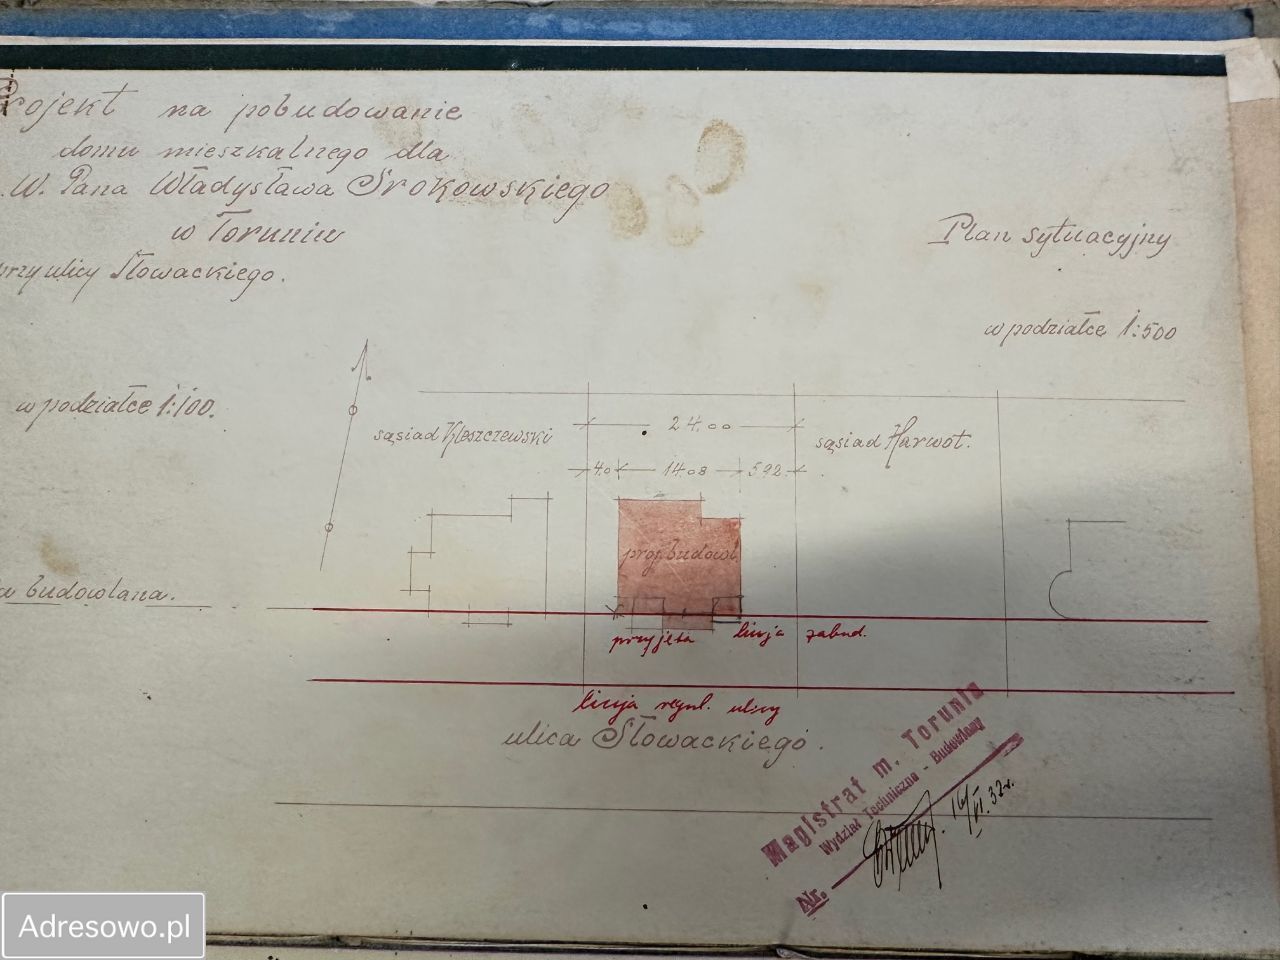 rojekt na pobudowanie
domu mieszkalnego dla
W. Pana Władysława Srokowskiego
w Toruniu
przy ulicy Słowackiego.
Plan sytuacyjny
w podziałce 1:500
w podziałce 1:100.
sąsiad Kleszczewski
24.00
sąsiad Harwot.
4.0 14.08 5.92
proj. budowl
budowlana.
przyjęta linja zabud.
linja regul. ulicy
ulica Słowackiego.
Magistrat m. Torunia
Wydział Techniczno - Budowlany
Nr.
16/VI.32r.
Adresowo.pl